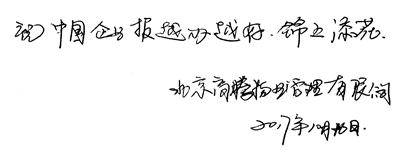 祝中国企业报越办越好.锦上添花.
北京高腾物业管理有限公司
2017年10月